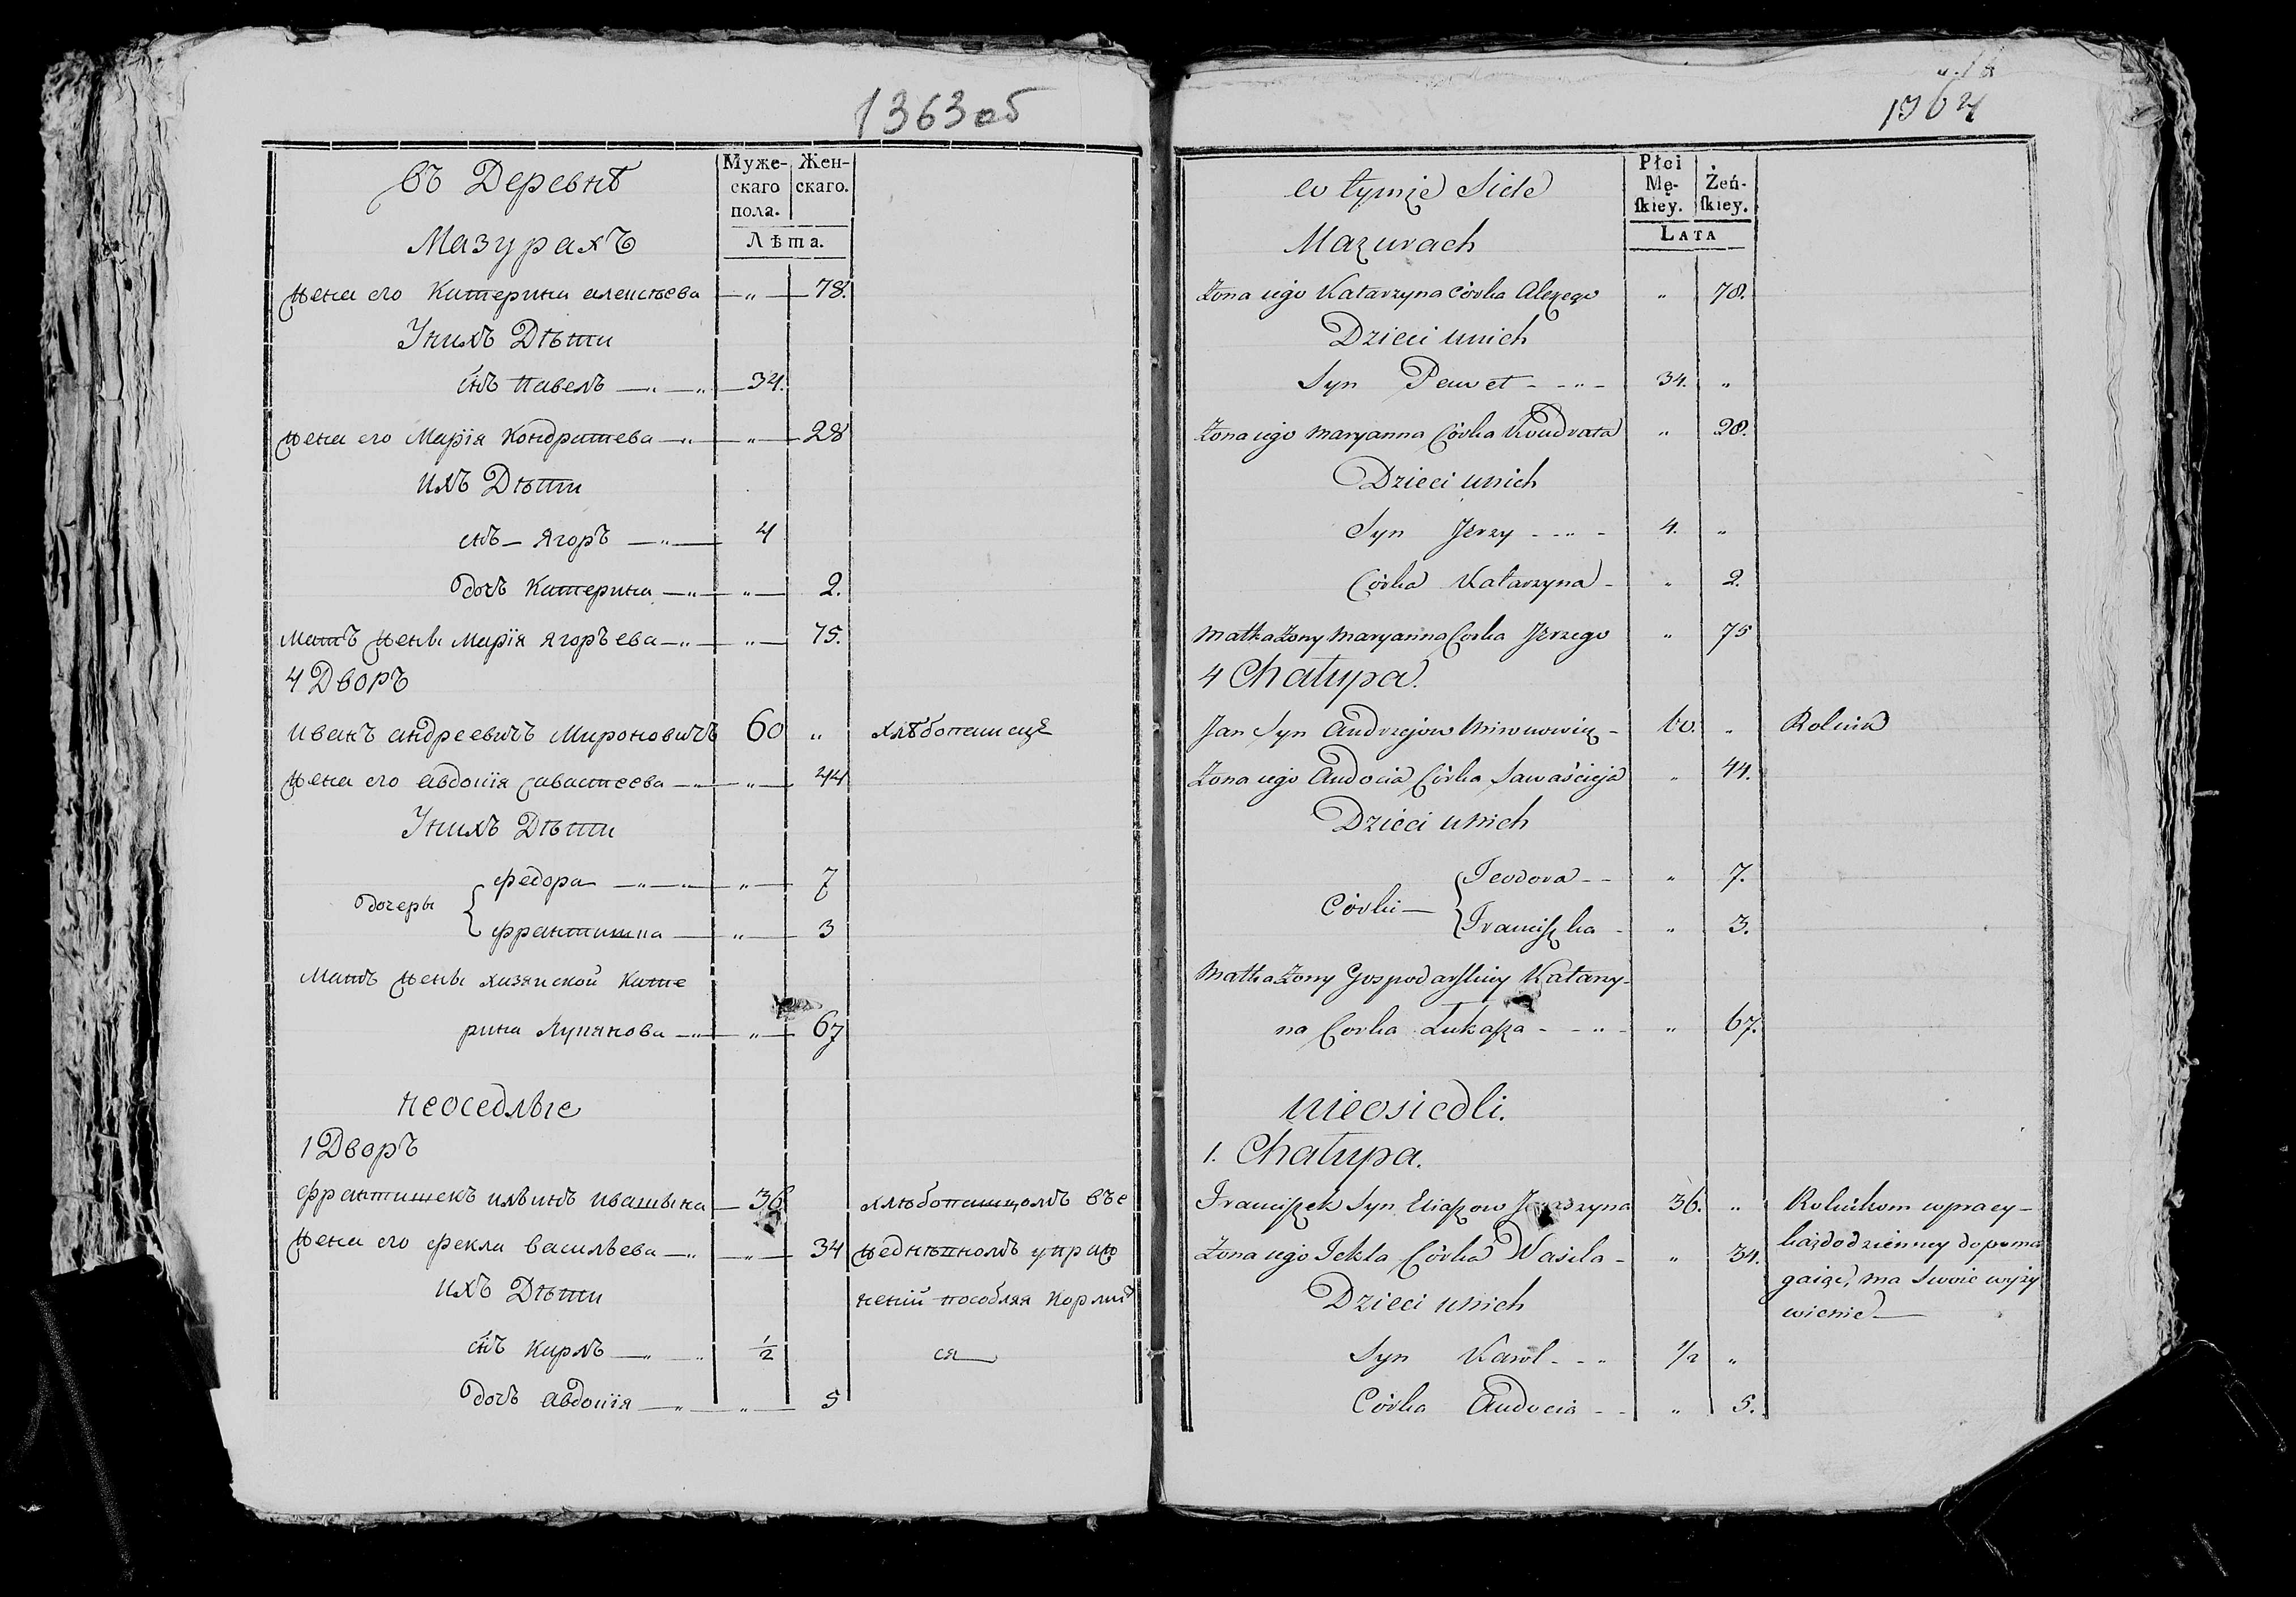 1363об
въ Деревнѣ
Мазурахъ
Муже-
скаго
пола.
Жен-
скаго.
Лѣта.
жена его Катерина алексѣева — " — 78.
У нихъ Дѣти
сн̃ъ павелъ — " — 34.
жена его Марія Кондратева — " — 28
ихъ Дѣти
снъ – Ягоръ — " — 4
дочъ Катерина — " — 2.
матъ жены марія ягоръева — " — 75.
4 Дворъ
иванъ андреевичъ Мироновичъ 60 " хлѣбопашецъ
жена его авдокія савастеева — " — 44
У нихъ Дѣти
дочеры { федора — " — 7
францишка — " — 3
Матъ жены хазяиской Кате
рина Лукянова — " — 67
неоседлые
1 Дворъ
францишекъ илъинъ ивашына — 36 хлѣбопашцомъ въе
жена его фекла василъева — " — 34 жеднѣшномъ упраж
ихъ Дѣти нений пособляя кормит
сн̃ъ Карлъ — " ½ ся
дочъ авдокія — " — 5
1364
w tymże Siele
Mazurach
Płci
Mę-
ſkiey.
Żeń-
ſkiey.
LATA
Żona iego Katarzyna córka Alexego " 78.
Dzieci unich
Syn Paweł - - " - 34. "
Żona iego Maryanna Córka Kondrata " 28.
Dzieci unich
Syn Jerzy - - " - 4. "
Córka Katarzyna - " 2.
Matka Żony Maryanna Corka Jerzego " 75
4 Chałupa.
Jan Syn Andrzejow Mironowicz - 60. " Rolnik
Żona iego Audocia Córka Sawaścieja " 44.
Dzieci unich
Córki — { Teodora - - " 7.
Franciſzka - " 3.
Matka Żony Gospodarſkiey Katarzy-
na Corka Łukaſza - - " - " 67.
nieosiedli.
1. Chałupa.
Franciſzek Syn Eliaſzow 36. " Rolnikom wpracy-
Żona iego Tekla Córka Wasila - " 34. każdodzienney dopoma
Dzieci unich gaiąc, ma Swoie wyży
wienie —
Syn Karol - - " 1/2 "
Córka Audocia - - " 5.